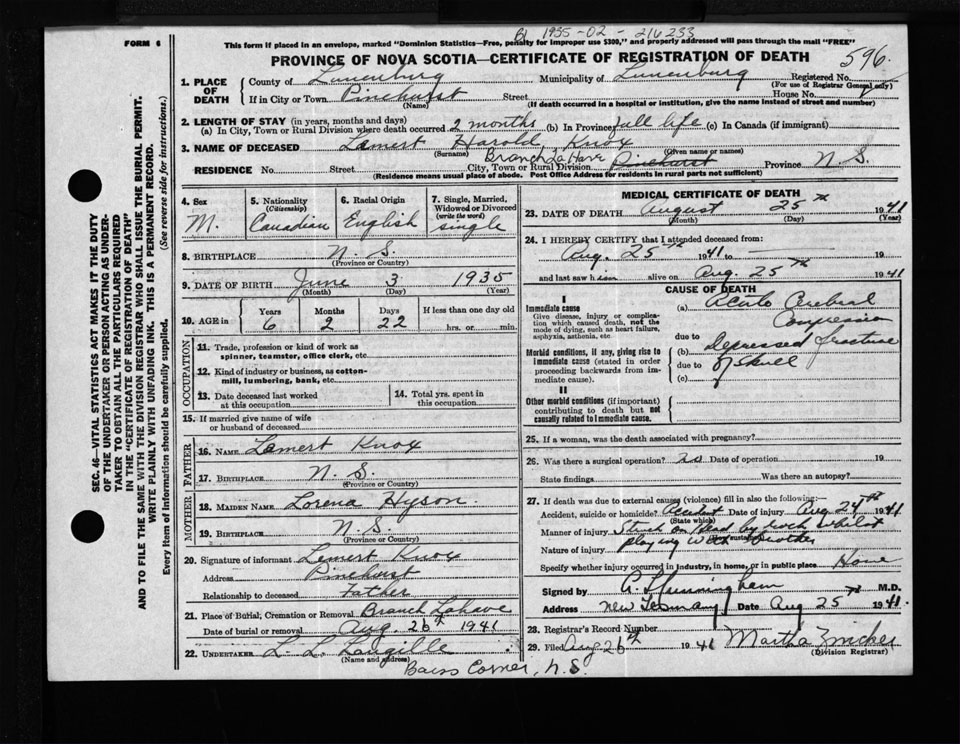 FORM 6
1935-02-216233
This form if placed in an envelope, marked "Dominion Statistics—Free, penalty for improper use $300," and properly addressed will pass through the mail "FREE"
PROVINCE OF NOVA SCOTIA—CERTIFICATE OF REGISTRATION OF DEATH 596
1. PLACE OF DEATH County of Lunenburg Municipality of Lunenburg Registered No.
(For use of Registrar General only)
If in City or Town Pinehurst Street House No.
(Name) (If death occurred in a hospital or institution, give the name instead of street and number)
2. LENGTH OF STAY (in years, months and days)
(a) In City, Town or Rural Division where death occurred 2 months (b) In Province all life (c) In Canada (if immigrant)
3. NAME OF DECEASED Lamert Harold Knox
(Surname) (Given name or names)
Branch LaHave
RESIDENCE No. Street City, Town or Rural Division Pinehurst Province N.S.
(Residence means usual place of abode. Post Office Address for residents in rural parts not sufficient)
4. Sex 5. Nationality (Citizenship) 6. Racial Origin 7. Single, Married, Widowed or Divorced (write the word)
M. Canadian English Single
8. BIRTHPLACE N.S.
(Province or Country)
9. DATE OF BIRTH June 3 1935
(Month) (Day) (Year)
10. AGE in Years Months Days If less than one day old
6 2 22 hrs. or min.
OCCUPATION
11. Trade, profession or kind of work as spinner, teamster, office clerk, etc.
12. Kind of industry or business, as cotton-mill, lumbering, bank, etc.
13. Date deceased last worked at this occupation
14. Total yrs. spent in this occupation
15. If married give name of wife or husband of deceased
FATHER
16. NAME Lamert Knox
17. BIRTHPLACE N.S.
(Province or Country)
MOTHER
18. MAIDEN NAME Lorena Hyson.
19. BIRTHPLACE N.S.
(Province or Country)
20. Signature of informant Lemert Knox
Address Pinehurst
Relationship to deceased Father
21. Place of Burial, Cremation or Removal Branch Lahave
Date of burial or removal Aug. 26th 1941
22. UNDERTAKER L. L. Langille
(Name and address)
Corner, N.S.
MEDICAL CERTIFICATE OF DEATH
23. DATE OF DEATH August 25th 1941
(Month) (Day) (Year)
24. I HEREBY CERTIFY that I attended deceased from:
Aug. 25th 1941 to 19
and last saw him alive on Aug. 25th 1941
CAUSE OF DEATH
I
Immediate cause
Give disease, injury or complication which caused death, not the mode of dying, such as heart failure, asphyxia, asthenia, etc.
(a) Acute Cerebral
Compression
due to
Morbid conditions, if any, giving rise to immediate cause (stated in order proceeding backwards from immediate cause).
(b) Depressed fracture
due to of skull
(c)
II
Other morbid conditions (if important) contributing to death but not causally related to immediate cause.
25. If a woman, was the death associated with pregnancy?
26. Was there a surgical operation? no Date of operation 19
State findings Was there an autopsy?
27. If death was due to external causes (violence) fill in also the following:
Accident, suicide or homicide? Accident Date of injury Aug 24th 1941
(State which)
Manner of injury Struck on head by rock whilst
Nature of injury playing with brother
Specify whether injury occurred in industry, in home, or in public place Home
Signed by Cunningham M.D.
Address New Germany Date Aug 25th 1941.
28. Registrar's Record Number
29. Filed Aug 26th 1941 Martha Zwicker
(Division Registrar)
SEC. 46—VITAL STATISTICS ACT MAKES IT THE DUTY
OF THE UNDERTAKER OR PERSON ACTING AS UNDER-
TAKER TO OBTAIN ALL THE PARTICULARS REQUIRED
IN THE "CERTIFICATE OF REGISTRATION OF DEATH"
AND TO FILE THE SAME WITH THE DIVISION REGISTRAR WHO SHALL ISSUE THE BURIAL PERMIT.
WRITE PLAINLY WITH UNFADING INK. THIS IS A PERMANENT RECORD.
Every item of information should be carefully supplied. (See reverse side for instructions.)